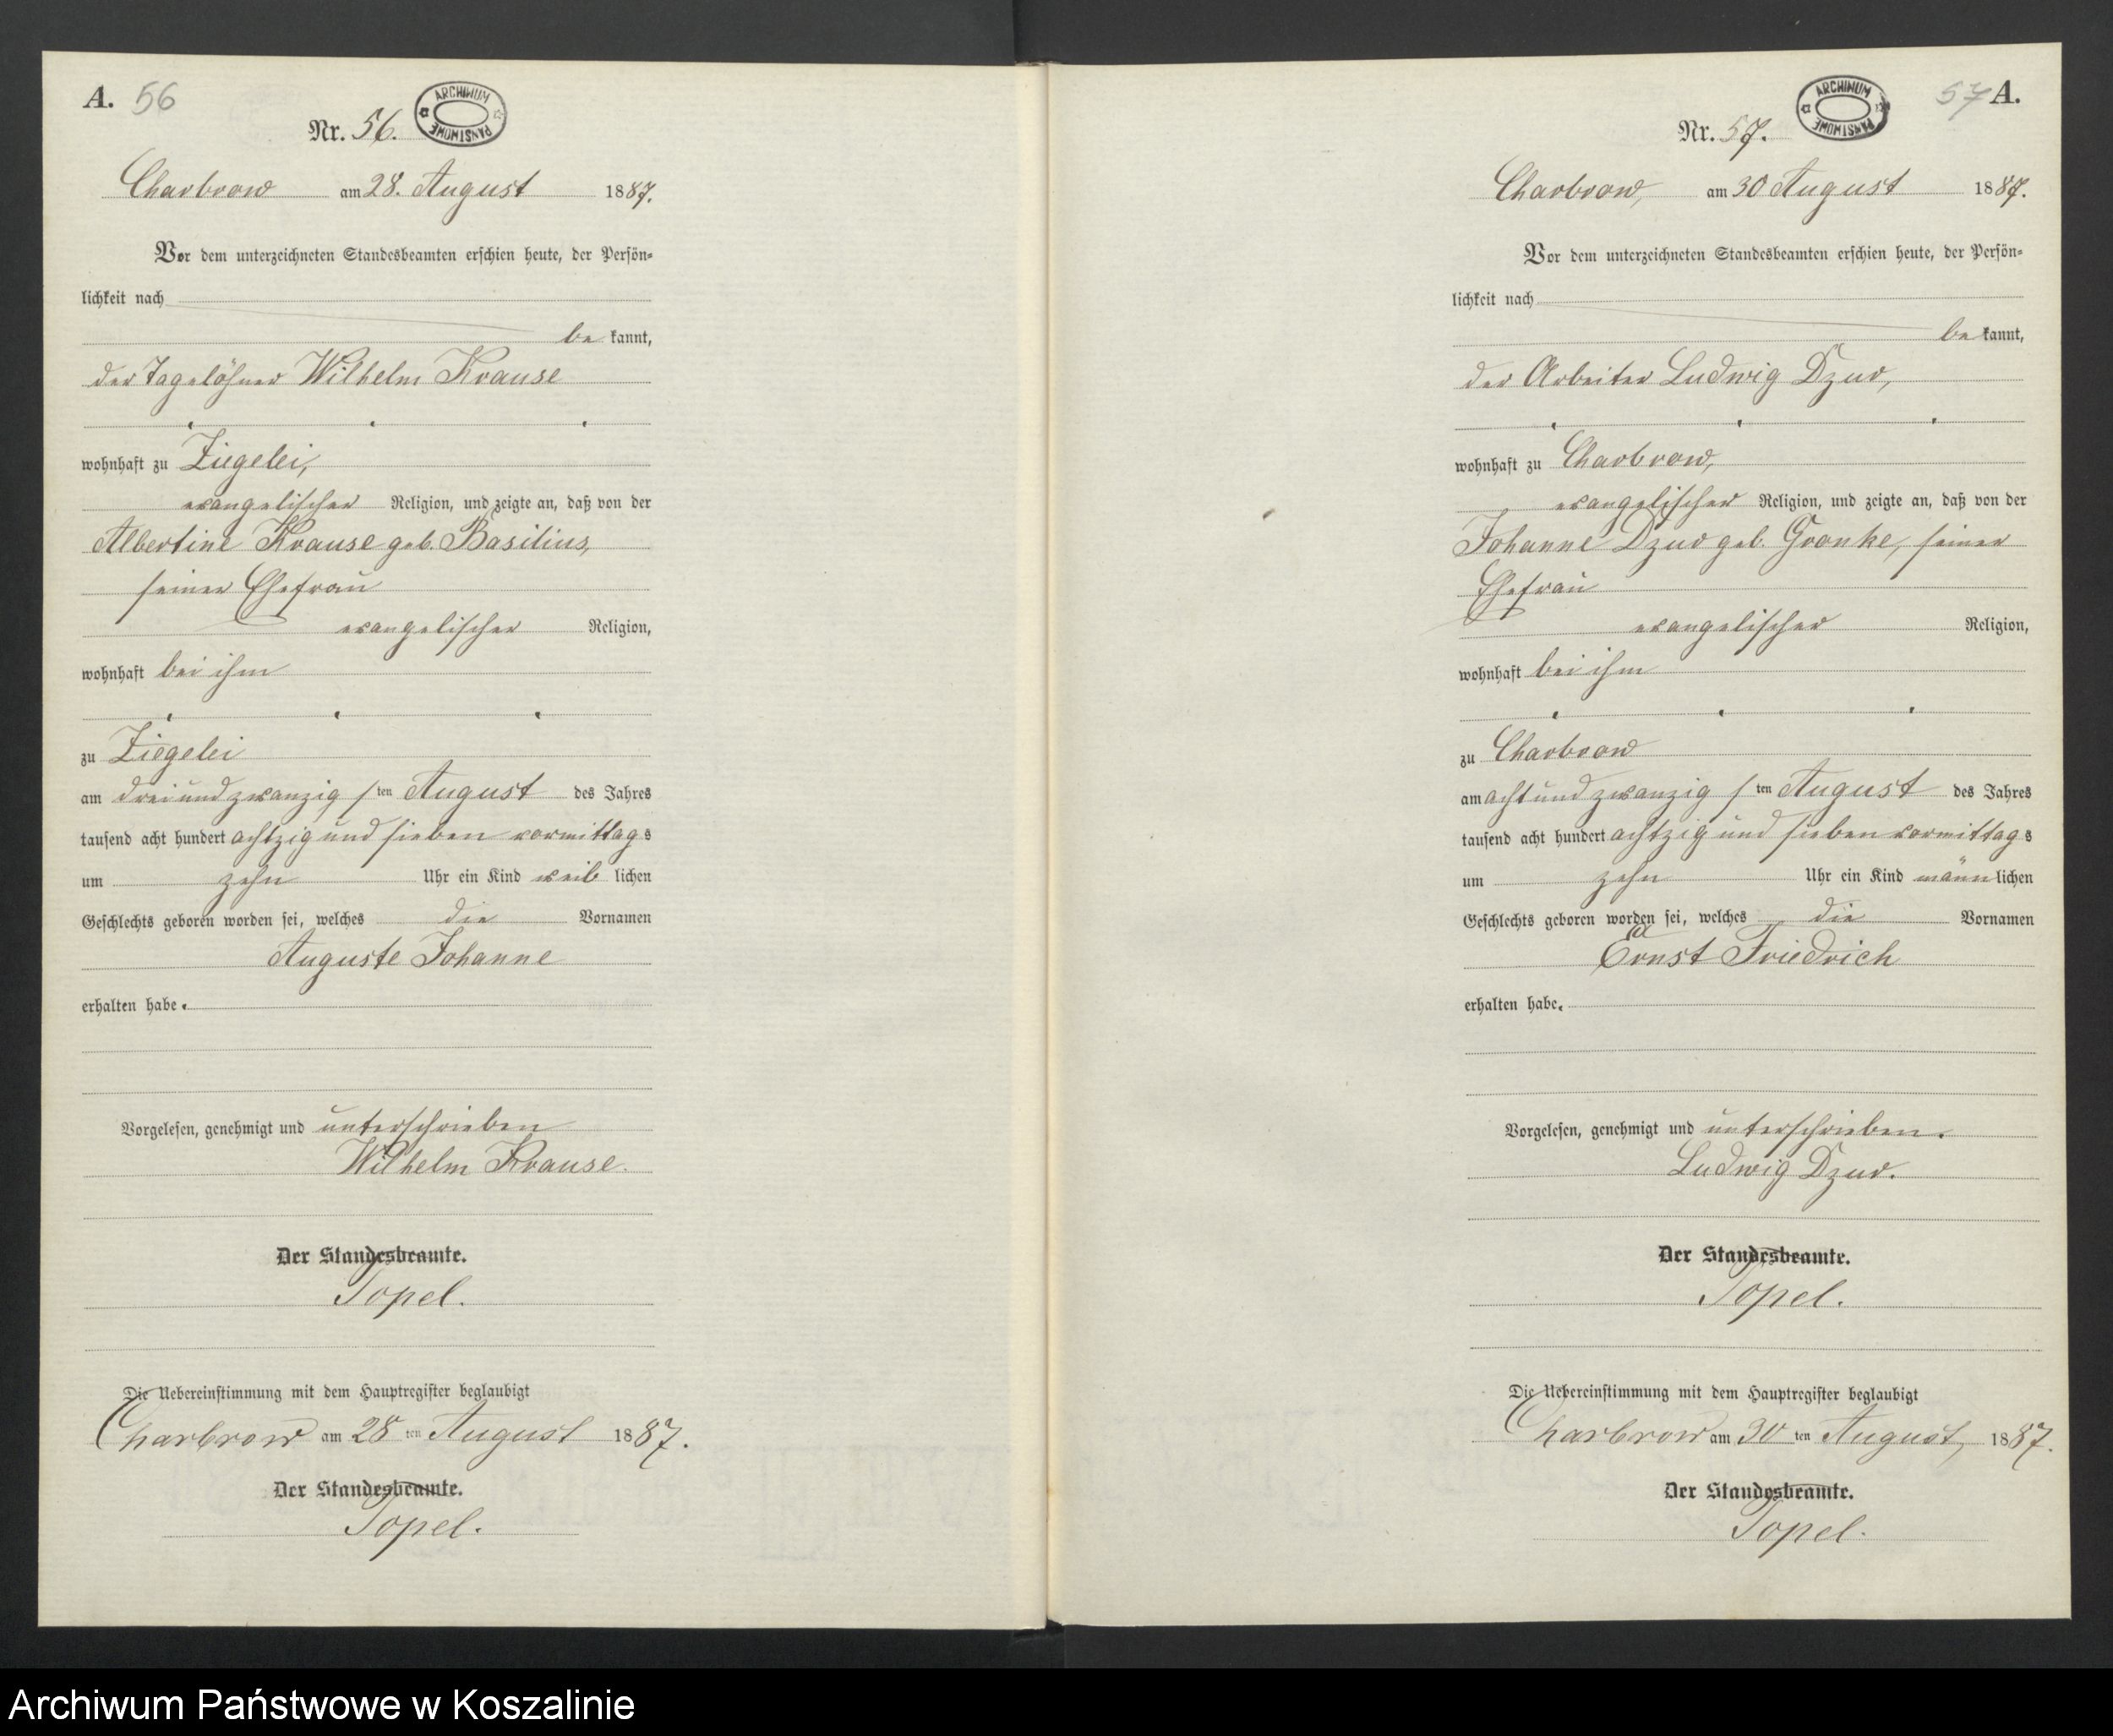 A. 56
ARCHIWUM PAŃSTWOWE
Nr. 56.
Charbrow am 28. August 1887.
Vor dem unterzeichneten Standesbeamten erschien heute, der Persön-
lichkeit nach
be kannt,
der Tagelöhner Wilhelm Krause
wohnhaft zu Ziegelei,
evangelischer Religion, und zeigte an, daß von der
Albertine Krause geb. Basilius,
seiner Ehefrau
evangelischer Religion,
wohnhaft bei ihm
zu Ziegelei
am drei und zwanzig sten August des Jahres
tausend acht hundert achtzig und sieben vormittags
um zehn Uhr ein Kind weib lichen
Geschlechts geboren worden sei, welches die Vornamen
Auguste Johanne
erhalten habe.
Vorgelesen, genehmigt und unterschrieben
Wilhelm Krause.
Der Standesbeamte.
Topel.
Die Uebereinstimmung mit dem Hauptregister beglaubigt
Charbrow am 28 ten August 1887.
Der Standesbeamte.
Topel.
57 A.
ARCHIWUM PAŃSTWOWE
Nr. 57.
Charbrow, am 30 August 1887.
Vor dem unterzeichneten Standesbeamten erschien heute, der Persön-
lichkeit nach
be kannt,
der Arbeiter Ludwig Dzur,
wohnhaft zu Charbrow,
evangelischer Religion, und zeigte an, daß von der
Johanne Dzur geb. Gronke, seiner
Ehefrau
evangelischer Religion,
wohnhaft bei ihm
zu Charbrow
am acht und zwanzig sten August des Jahres
tausend acht hundert achtzig und sieben vormittags
um zehn Uhr ein Kind männlichen
Geschlechts geboren worden sei, welches die Vornamen
Ernst Friedrich
erhalten habe.
Vorgelesen, genehmigt und unterschrieben.
Ludwig Dzur.
Der Standesbeamte.
Topel.
Die Uebereinstimmung mit dem Hauptregister beglaubigt
Charbrow am 30 ten August, 1887.
Der Standesbeamte.
Topel.
Archiwum Państwowe w Koszalinie